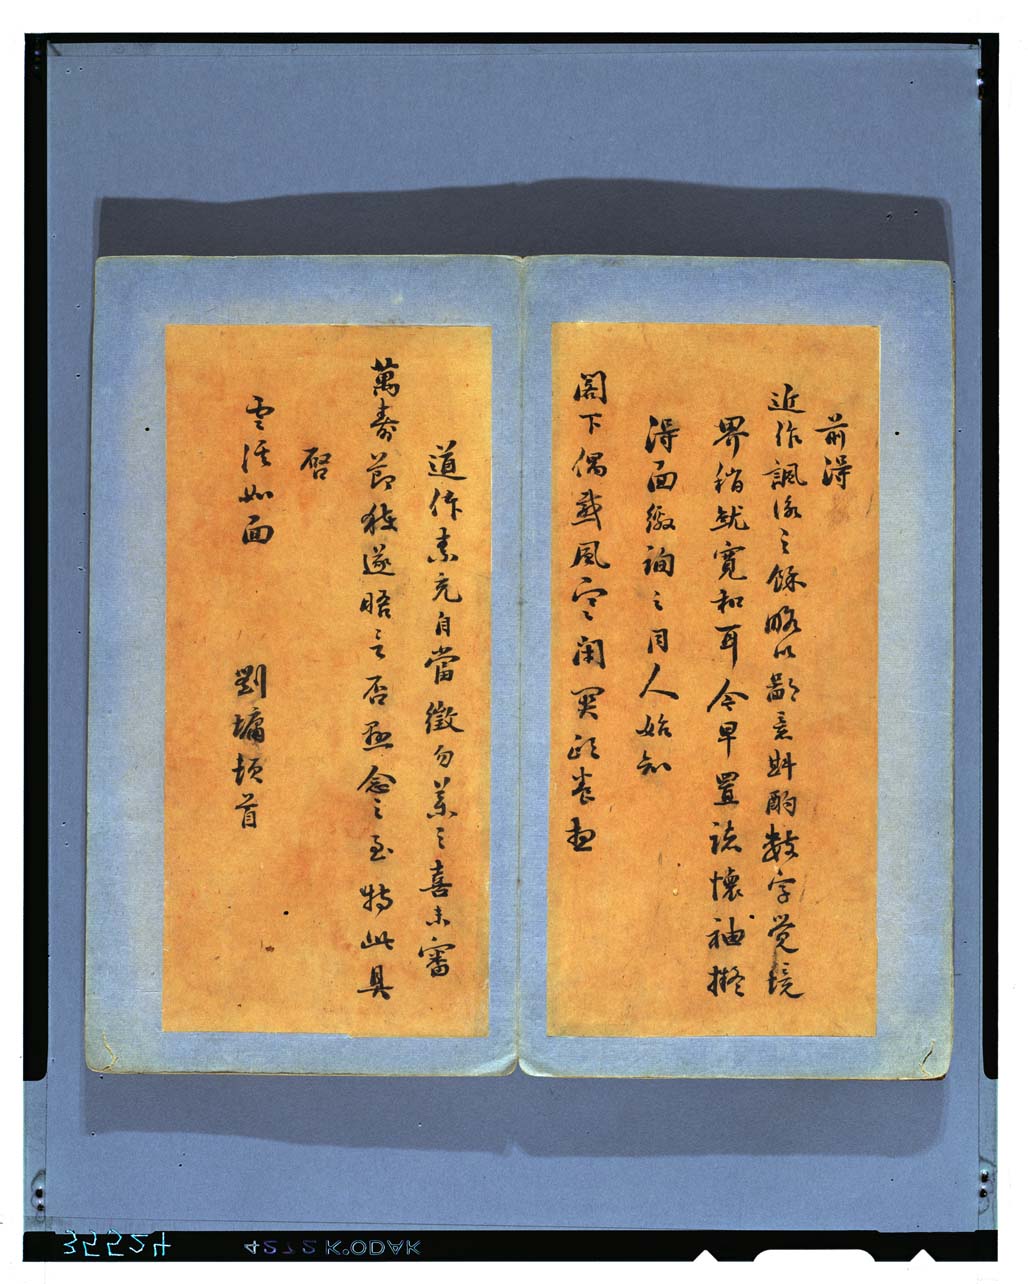 前得
近作諷詠之餘略以鄙意斟酌数字觉境
界稍就寬和耳今早置諸懷袖擬
得面繳詢之同人始知
閣下偶感風寒閉關頤養想
道体素充自當徵勿藥之喜未審
萬壽節能遂晤言否懸念之至特此具
啓
如面 劉墉頓首
35524
4272 KODAK